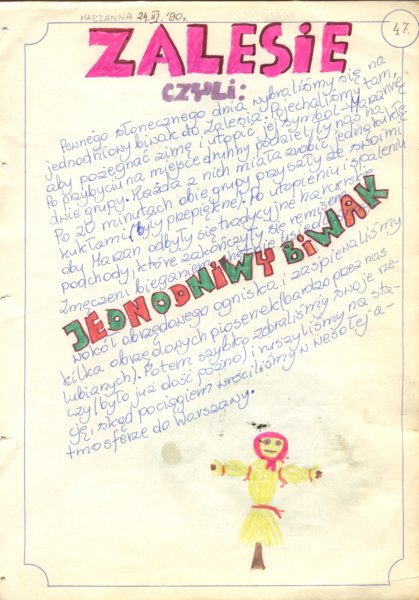 MARZANNA 24.III. '90r.
47.
ZALESIE
CZYLI:
Pewnego słonecznego dnia wybraliśmy się na
jednodniowy biwak do Zalesia. Pojechaliśmy tam,
aby pożegnać zimę i utopić jej symbol - Marzannę
Po przybyciu na miejsce druhny podzieliły nas na
dwie grupy. Każda z nich miała zrobić jedną kukłę
Po 20 minutach obie grupy przyszły ze swoimi
kukłami (były przepiękne). Po utopieniu i spaleniu
obу Marzann odbyły się tradycyjne
podchody, które zakończyły się remisem
Zmęczeni bieganiem
JEDNODNIWY BIWAK
wokół obrzędowego ogniska i zaśpiewaliśmy
kilka obrzędowych piosenek (bardzo przez nas
lubianych). Potem szybko zebraliśmy swoje rze-
czy (było już dość późno) i ruszyliśmy na sta-
cję, skąd pociągiem wróciliśmy w wesołej a-
tmosferze do Warszawy.